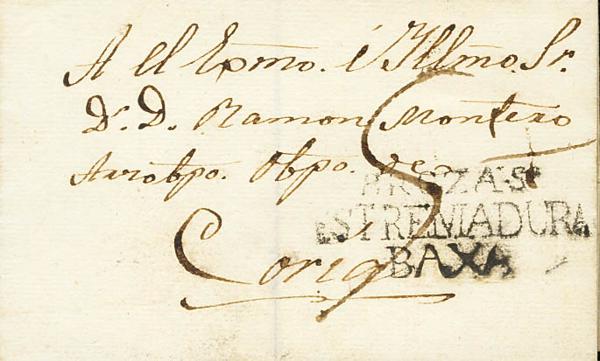 A el Exmo. é Yllmo. Sr.
Dr. D. Ramon Montero
Arzobpo. Obpo. de
BROZAS
ESTREMADURA
BAXA
Coria
5